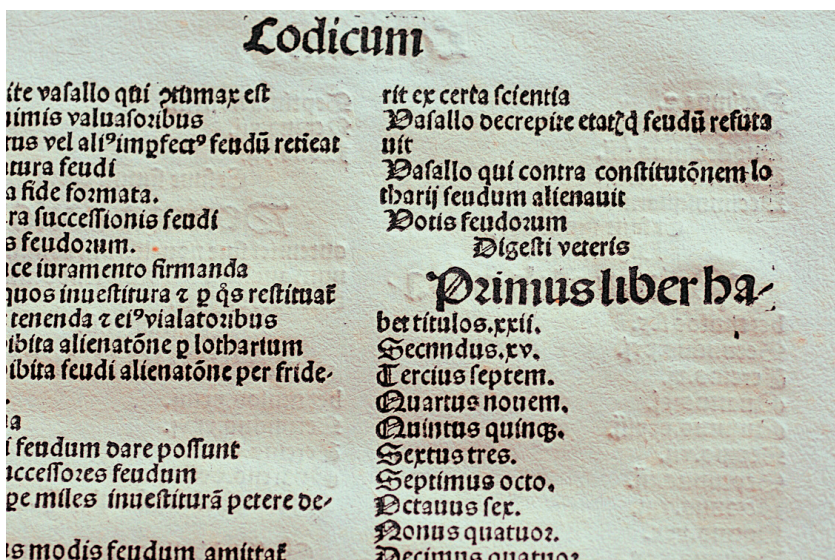 Codicum
ite vasallo qui ꝯtumax est
nimis valuasoribus
tus vel aliꝰ imꝑfectꝰ feudū retieat
atura feudi
a fide formata.
ra successionis feudi
s feudorum.
ace iuramento firmanda
quos inuestitura ⁊ ꝑ q̄s restituat̄
tenenda ⁊ eiꝰ vialatoribus
ibita alienatōne ꝑ lotharium
ibita feudi alienatōne per fride-
.
a
i feudum dare possunt
uccessores feudum
pe miles inuestiturā petere de-
us modis feudum amittat̄
rit ex certa scientia
Vasallo decrepite etat̄ feudū refuta
uit
Vasallo qui contra constitutōnem lo
tharij feudum alienauit
Votis feudorum
Digesti veteris
Primus liber ha-
bet titulos.xxii.
Secnndus.xv.
Tercius septem.
Quartus nouem.
Quintus quinqꝫ.
Sextus tres.
Septimus octo.
Octauus sex.
Nonus quatuor.
Decimus quatuor